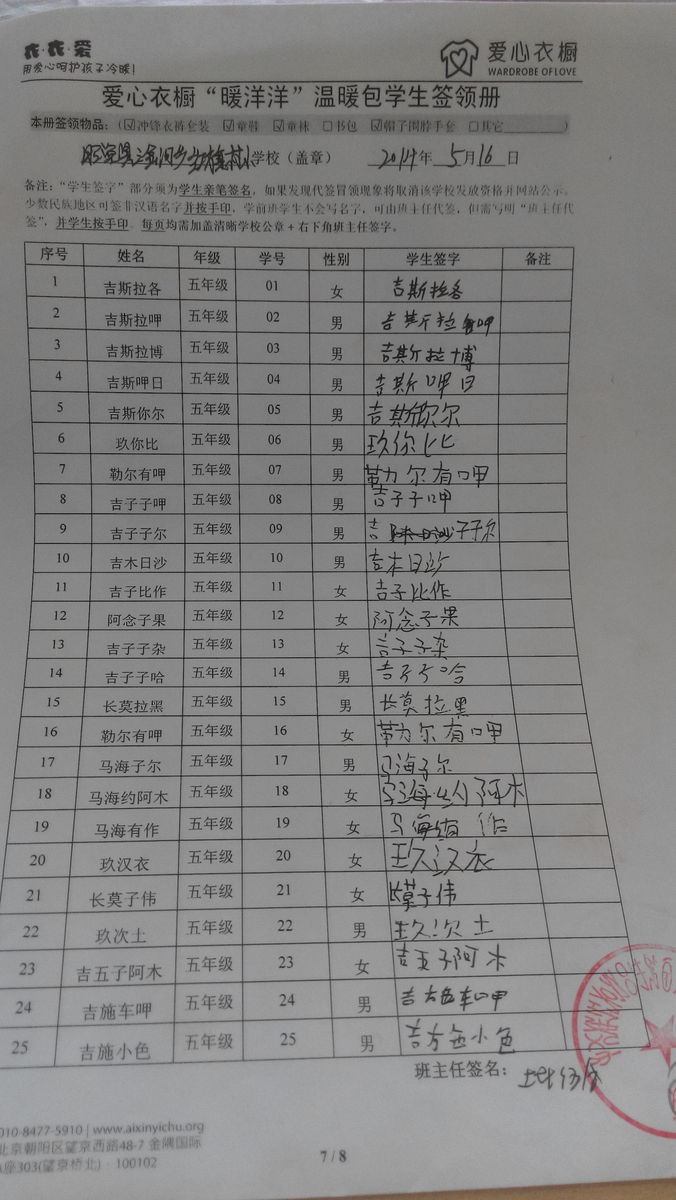 衣·衣·爱
用爱心呵护孩子冷暖!
爱心衣橱
WARDROBE OF LOVE
爱心衣橱“暖洋洋”温暖包学生签领册
本册签领物品:(☑冲锋衣裤套装 ☑童鞋 ☑童袜 □书包 ☑帽子围脖手套 □其它________)
学校(盖章) 2014年 5月16日
备注:“学生签字”部分须为学生亲笔签名,如果发现代签冒领现象将取消该学校发放资格并网站公示。
少数民族地区可签非汉语名字并按手印,学前班学生不会写名字,可由班主任代签,但需写明“班主任代
签”,并学生按手印。每页均需加盖清晰学校公章+右下角班主任签字。
序号 姓名 年级 学号 性别 学生签字 备注
1 吉斯拉各 五年级 01 女 吉斯拉各
2 吉斯拉呷 五年级 02 男 吉斯拉呷
3 吉斯拉博 五年级 03 男 吉斯拉博
4 吉斯呷日 五年级 04 男 吉斯呷日
5 吉斯你尔 五年级 05 男 吉斯你尔
6 玖你比 五年级 06 男 玖你比
7 勒尔有呷 五年级 07 男 勒尔有呷
8 吉子子呷 五年级 08 男 吉子子呷
9 吉子子尔 五年级 09 男 吉子子尔
10 吉木日沙 五年级 10 男 吉木日沙
11 吉子比作 五年级 11 女 吉子比作
12 阿念子果 五年级 12 女 阿念子果
13 吉子子杂 五年级 13 女 吉子子杂
14 吉子子哈 五年级 14 男 吉子子哈
15 长莫拉黑 五年级 15 男 长莫拉黑
16 勒尔有呷 五年级 16 女 勒尔有呷
17 马海子尔 五年级 17 男 马海子尔
18 马海约阿木 五年级 18 女 马海约阿木
19 马海有作 五年级 19 女 马海有作
20 玖汉衣 五年级 20 女 玖汉衣
21 长莫子伟 五年级 21 女 长莫子伟
22 玖次土 五年级 22 男 玖次土
23 吉五子阿木 五年级 23 女 吉五子阿木
24 吉施车呷 五年级 24 男 吉方色车呷
25 吉施小色 五年级 25 男 吉方色小色
班主任签名:
010-8477-5910 | www.aixinyichu.org
北京朝阳区望京西路48-7 金隅国际
A座303(望京桥北) · 100102
7 / 8